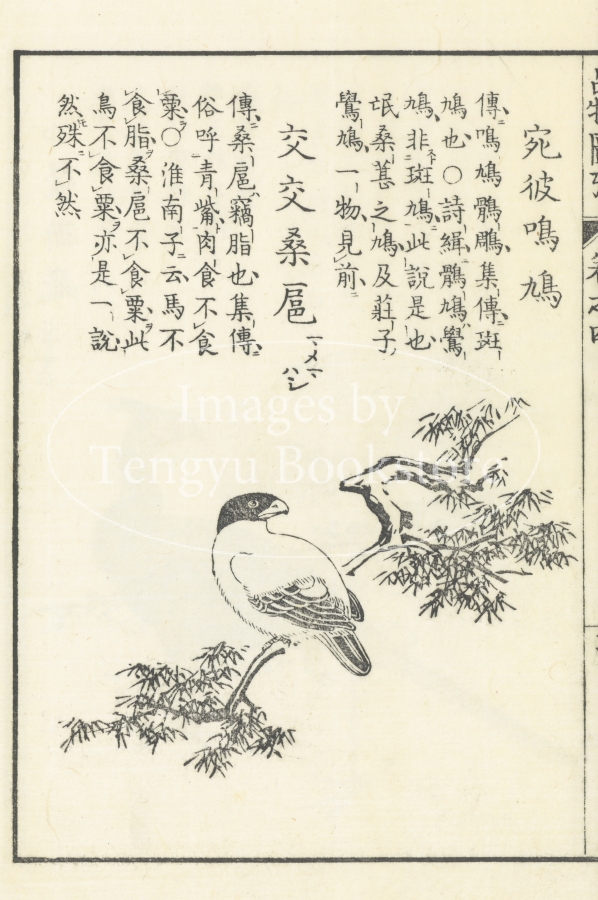 宛彼鳴鳩
傳鳴鳩鶻鵰集傳斑
鳩也〇詩緝鶻鳩鷽
鳩非斑鳩此說是也
氓桑葚之鳩及莊子
鷽鳩一物見前
交交桑扈 マメマハシ
傳桑扈竊脂也集傳
俗呼青觜肉食不食
粟〇淮南子云馬不
食脂桑扈不食粟此
鳥不食粟亦是一說
然殊不然
Images by
Tengyu Bookstore